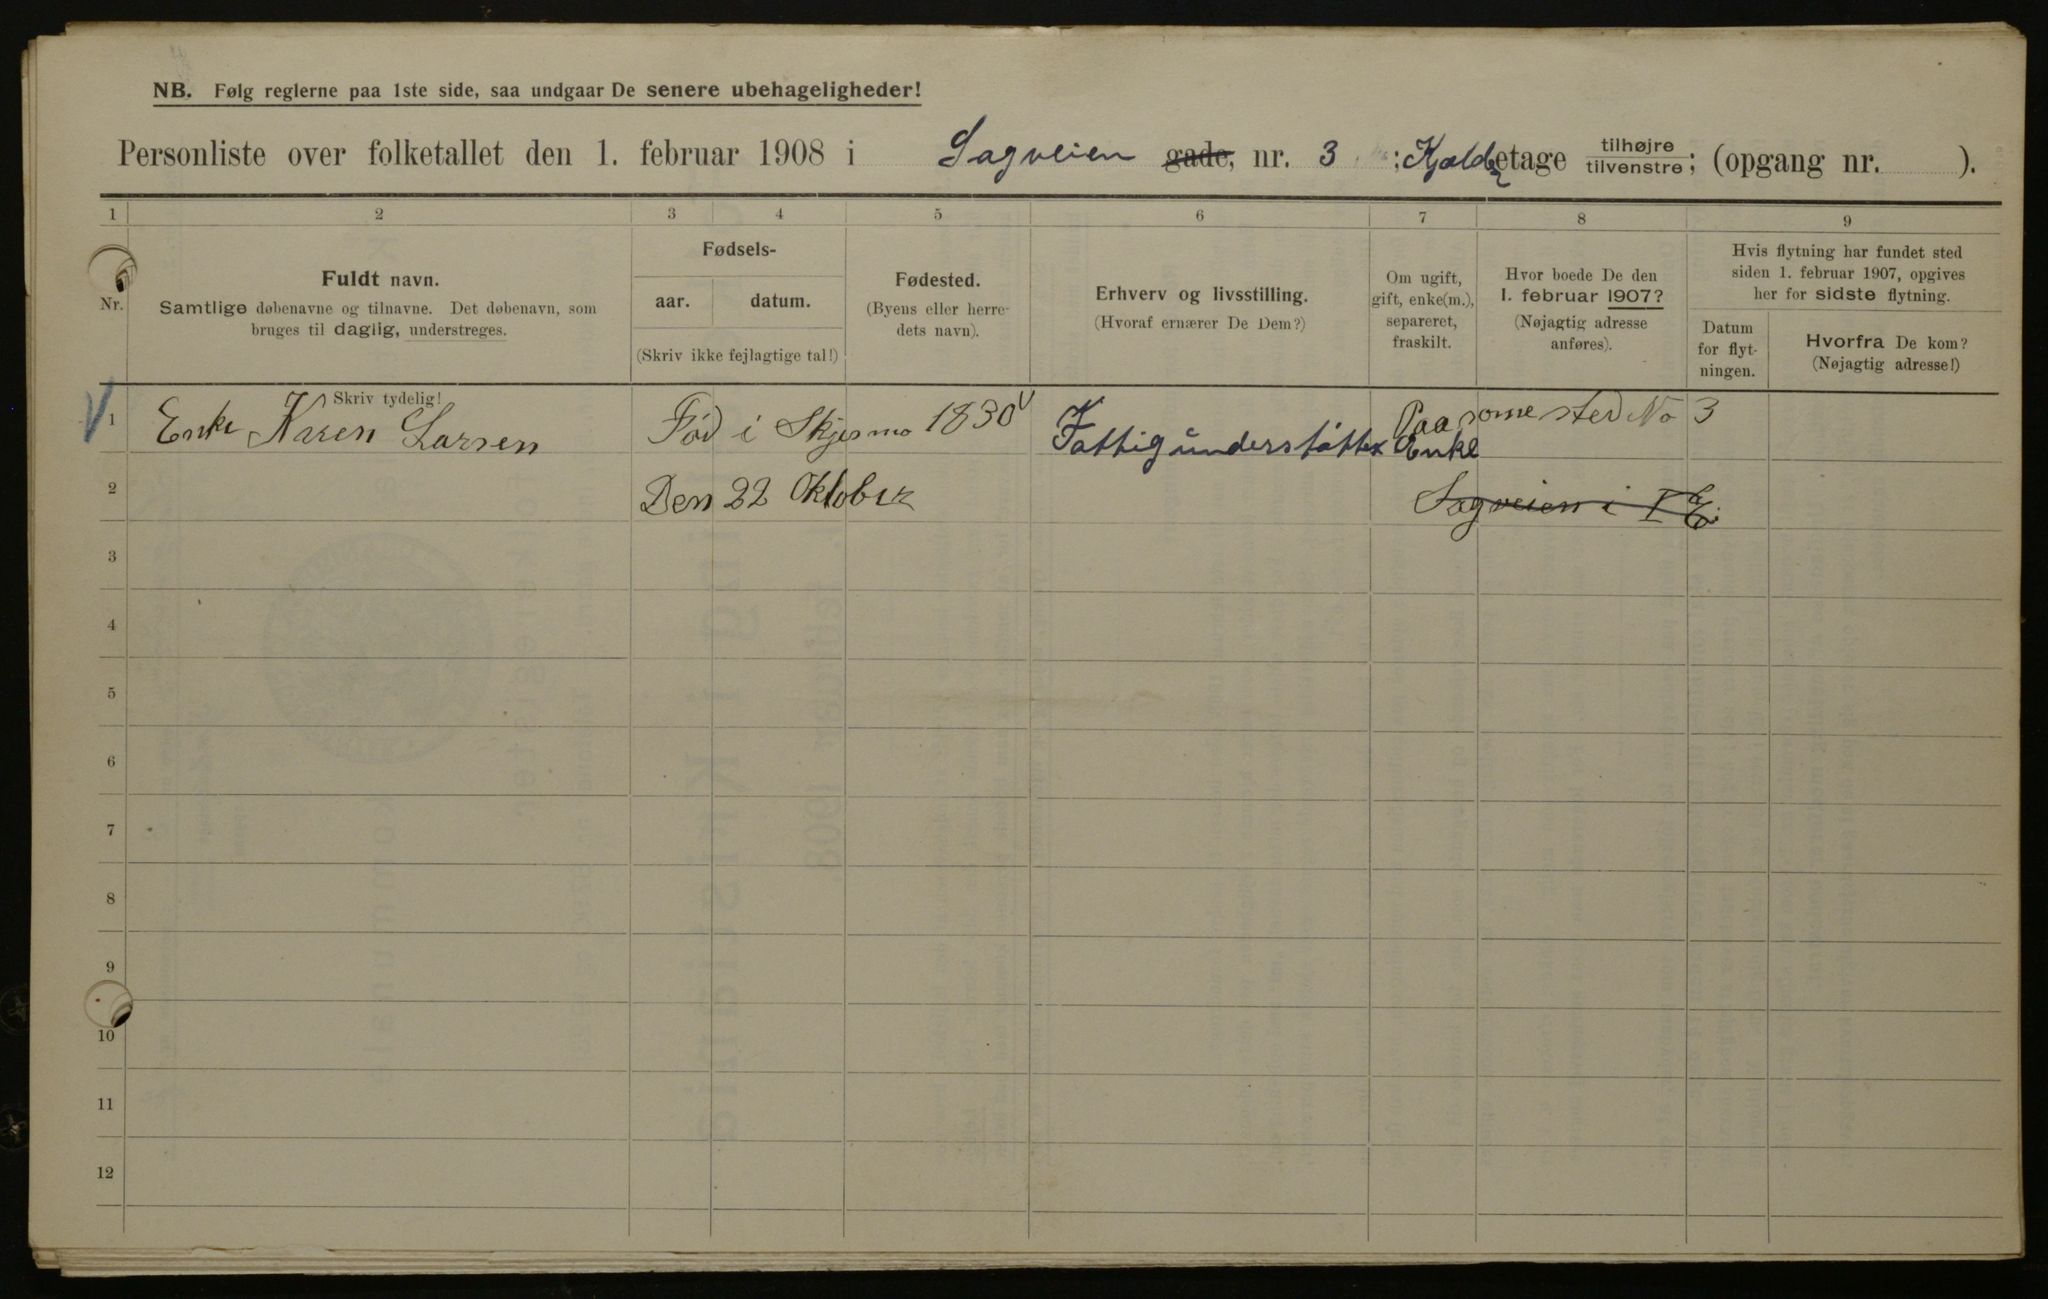 NB. Følg reglerne paa 1ste side, saa undgaar De senere ubehageligheder!
Personliste over folketallet den 1. februar 1908 i Sagveien gade, nr. 3 ; Kjelder etage tilhøjre tilvenstre; (opgang nr. ).
1 2 3 4 5 6 7 8 9
Nr.
Fuldt navn.
Samtlige døbenavne og tilnavne. Det døbenavn, som
bruges til daglig, understreges.
Fødsels-
aar. datum.
(Skriv ikke fejlagtige tal!)
Fødested.
(Byens eller herre-
dets navn).
Erhverv og livsstilling.
(Hvoraf ernærer De Dem?)
Om ugift,
gift, enke(m.),
separeret,
fraskilt.
Hvor boede De den
1. februar 1907?
(Nøjagtig adresse
anføres).
Hvis flytning har fundet sted
siden 1. februar 1907, opgives
her for sidste flytning.
Datum
for flyt-
ningen.
Hvorfra De kom?
(Nøjagtig adresse!)
Skriv tydelig!
1 Enke Karen Larsen Fød i Skjesmo 1830 Fattigunderstøttet Enke Paa some sted No 3
2 Den 22 Oktober Sagveien i I E.
3
4
5
6
7
8
9
10
11
12